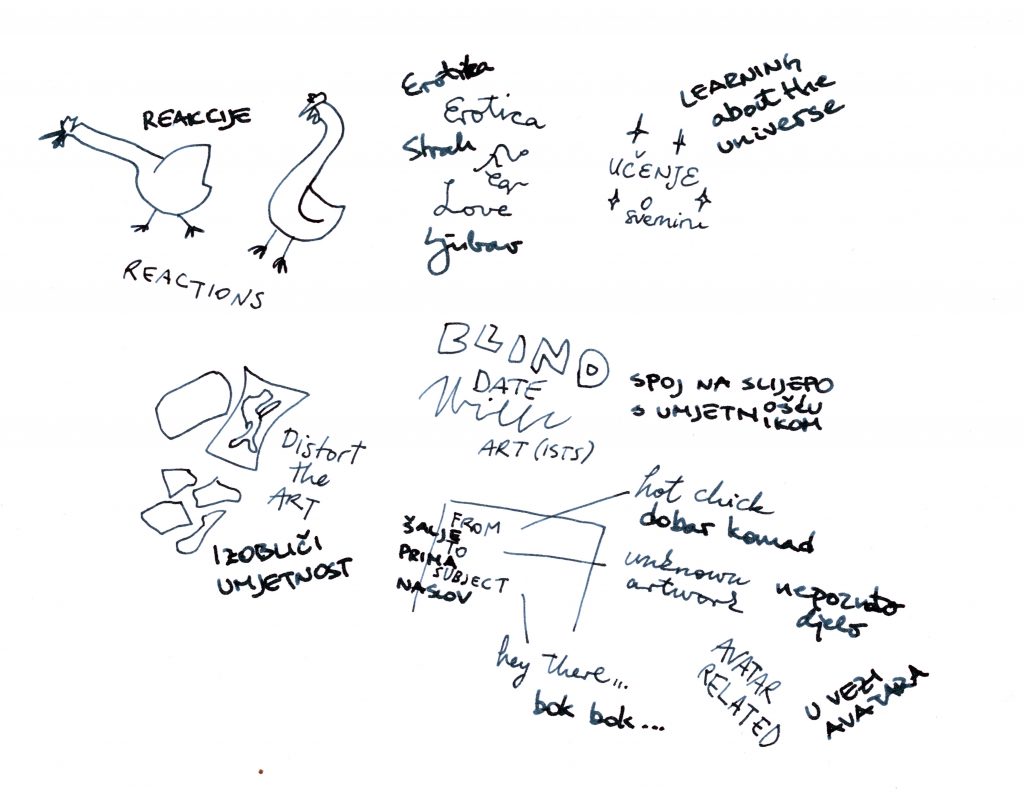 REAKCIJE
REACTIONS
Erotika
Erotica
Strah
Love
Ljubav
LEARNING
about the
universe
UČENJE
O
svemiru
BLIND
DATE
With
ART(ISTS)
SPOJ NA SLIJEPO
S UMJETNOŠĆU
IKOM
Distort
the
ART
IZOBLIČI
UMJETNOST
FROM
ŠALJE
TO
PRIMA
SUBJECT
NASLOV
hot chick
dobar komad
unknown
artwork
nepoznato
djelo
hey there...
bok bok...
AVATAR
RELATED
U VEZI
AVATARA